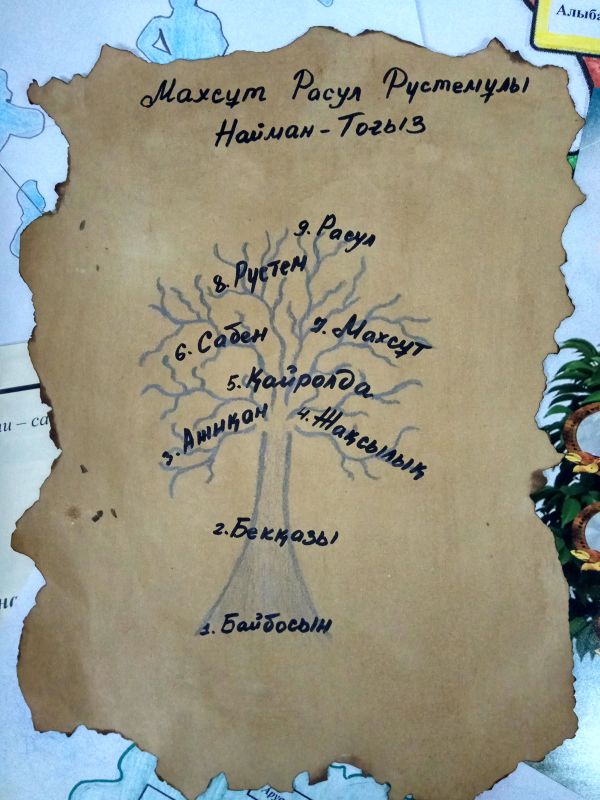 Алыба
Махсұт Расул Рустемұлы
Найман - Тоғыз
9. Расул
8. Рустем
7. Махсұт
6. Сабен
5. Қайролда
4. Жақсылық
3. Ажиқан
2. Бекқазы
1. Байбосын